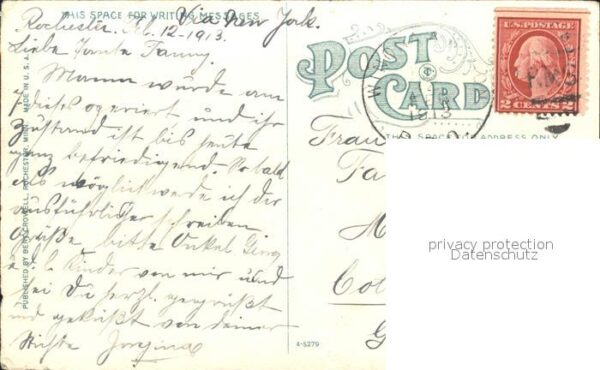 THIS SPACE FOR WRITING MESSAGES
Via New York.
Rochester. 12-1913.
Liebe Tante Fanny.
Mama wurde am
dieses operiert und ihr
Zustand ist bis heute
ganz befriedigend. Sobald
als möglich werde ich dir
ausführlicher schreiben
Grüße bitte Onkel
Kinder von mir und
sei Du herzl. gegrüßt
und geküßt von deiner
Nichte
PUBLISHED BY BERT CROWELL, ROCHESTER, MINN. MADE IN U.S.A.
POST CARD
U.S. POSTAGE
2 CENTS 2
1913
THIS SPACE FOR ADDRESS ONLY
Frau
Fa
M
Cob
G
privacy protection
Datenschutz
4-5279